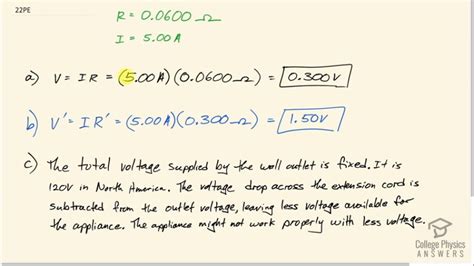 22PE
R = 0.0600 Ω
I = 5.00 A
a) V = IR = (5.00 A)(0.0600 Ω) = 0.300 V
b) V' = IR' = (5.00 A)(0.300 Ω) = 1.50 V
c) The total voltage supplied by the wall outlet is fixed. It is
120V in North America. The voltage drop across the extension cord is
subtracted from the outlet voltage, leaving less voltage available for
the appliance. The appliance might not work properly with less voltage.
College Physics
ANSWERS